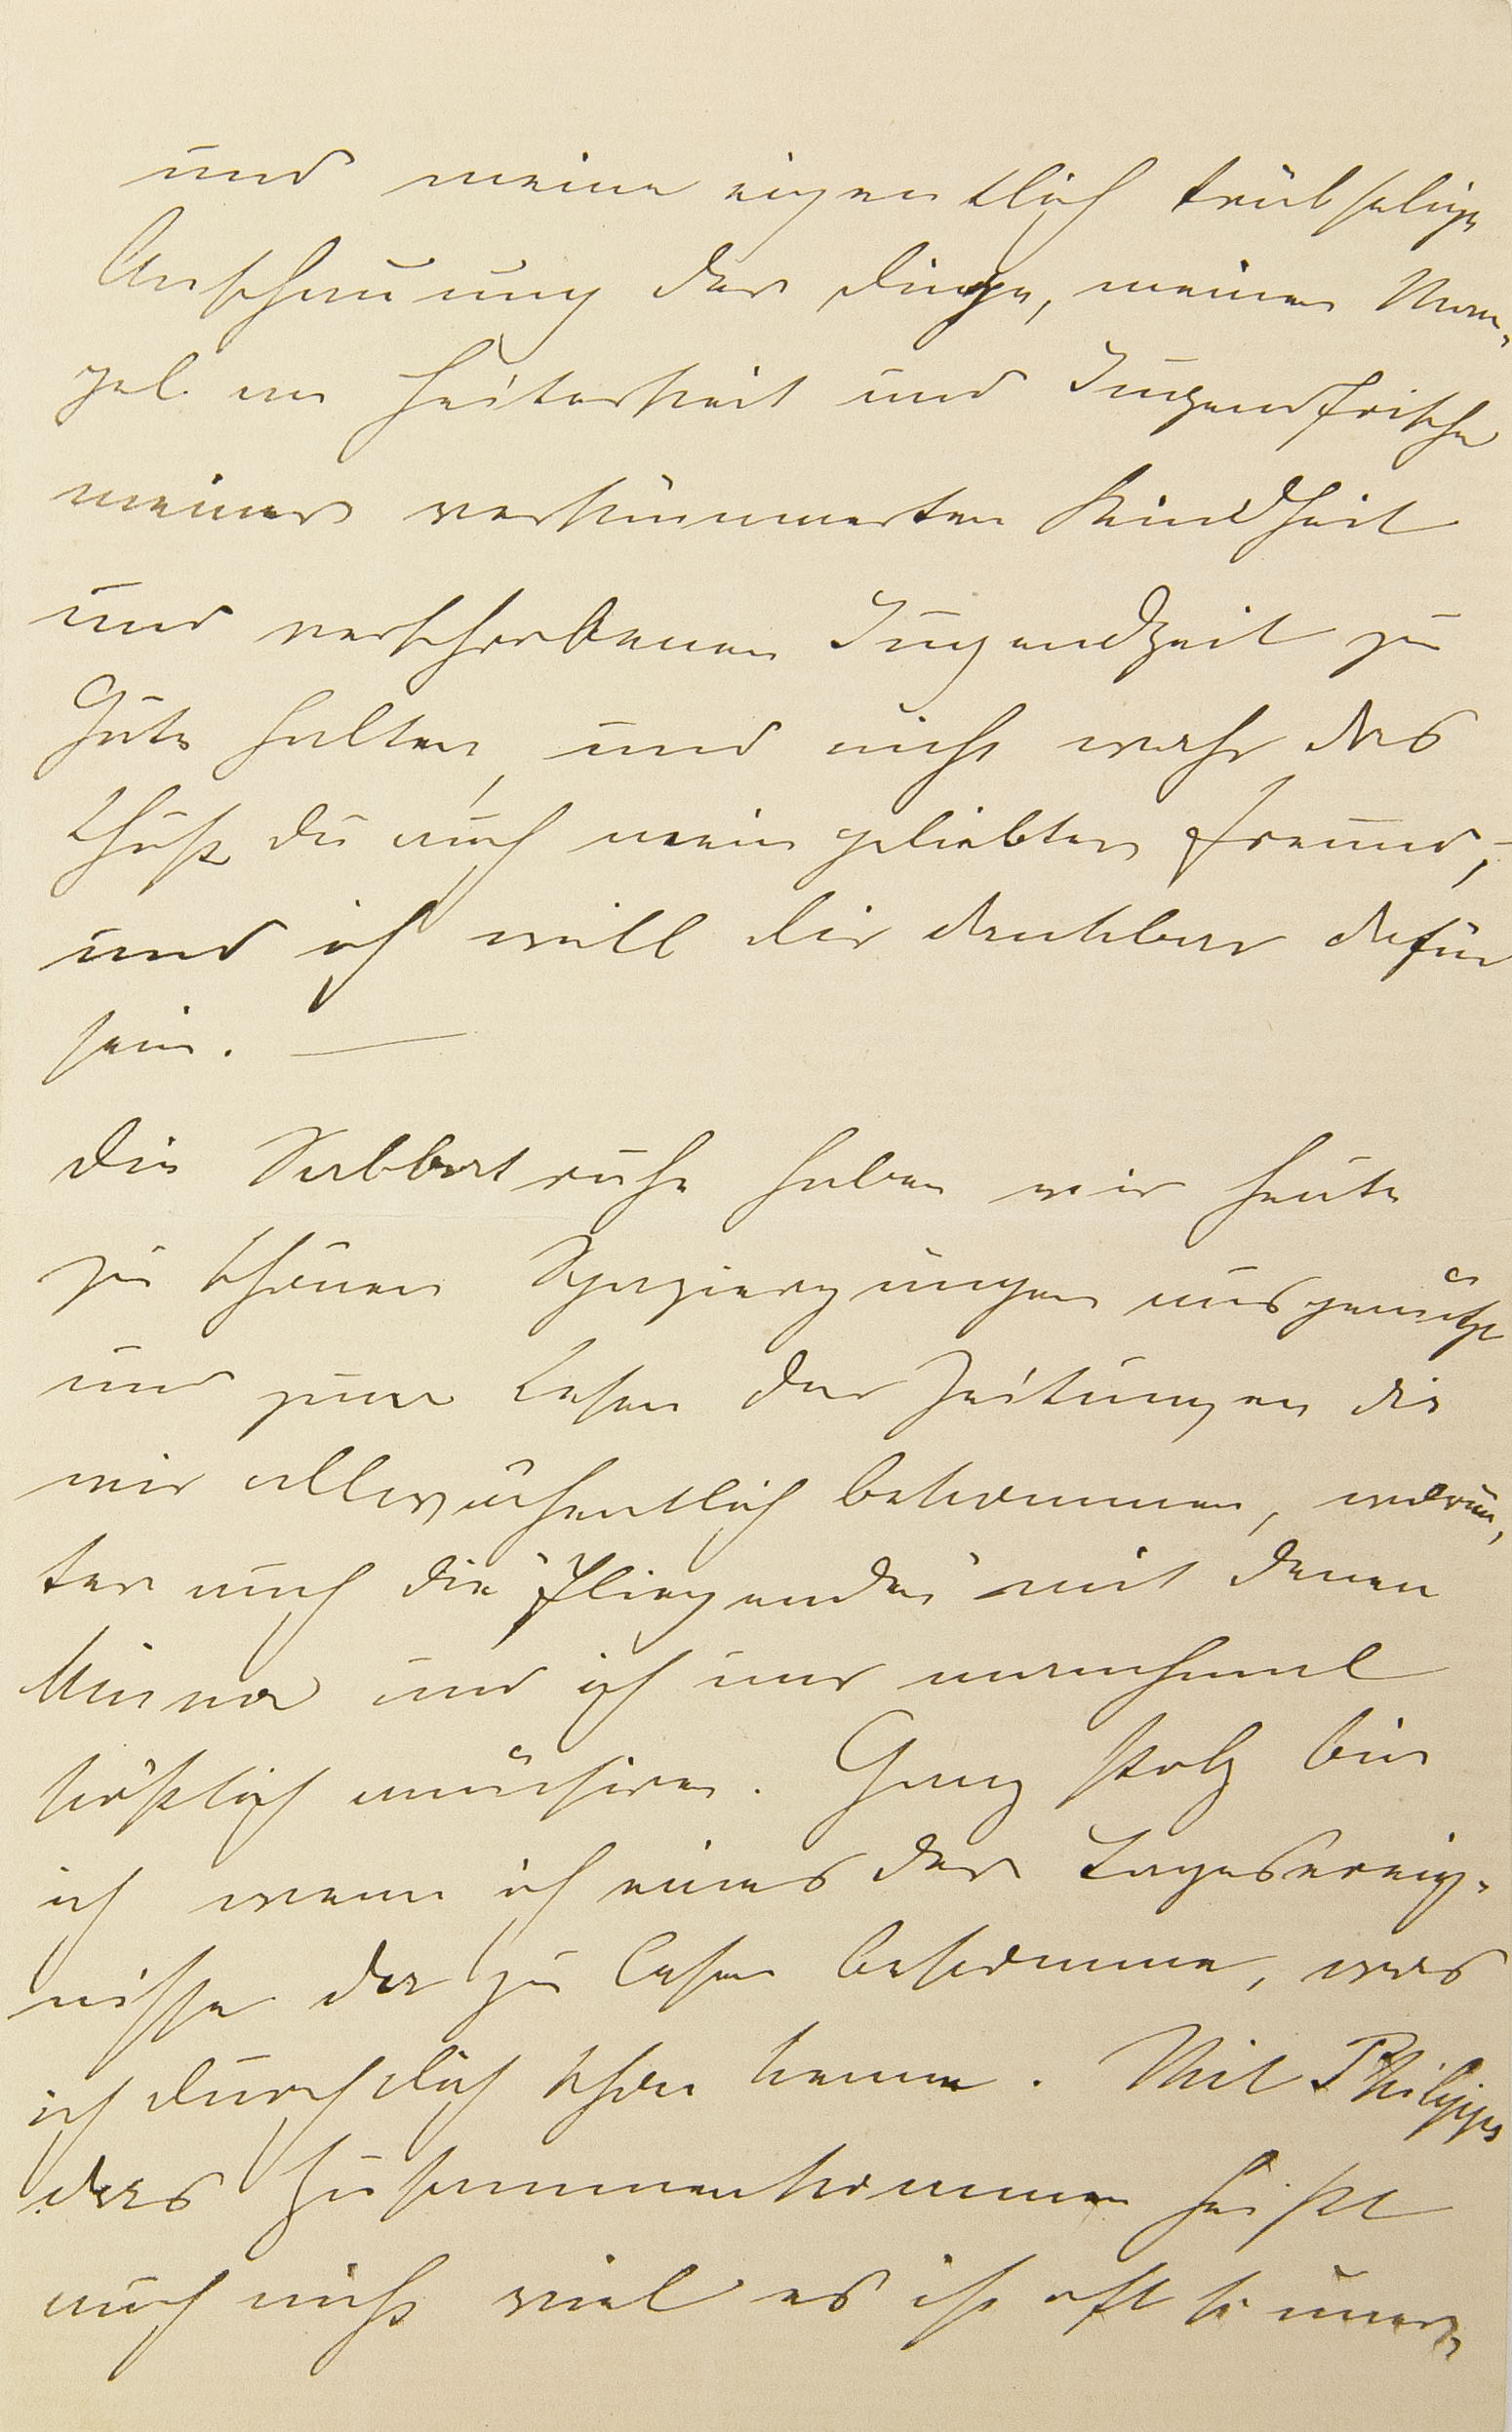 und meine eigentlich trübselige
Anschauung der Dinge, meinen Man-
gel an Heiterkeit und Jugendfrische
meiner verkümmerten Kindheit
und verschobenen Jugendzeit zu
Gute halten, und nicht wahr das
thust du auch mein geliebter Freund, -
und ich will dir dankbar dafür
sein. —
Die Sabbatruhe haben wir heute
zu schönen Spaziergängen ausgenützt
und zum Lesen der Zeitungen die
wir allwöchentlich bekommen, worun-
ter auch die "Fliegenden" mit denen
Minna und ich uns manchmal
köstlich amüsiren. Ganz stolz bin
ich wenn ich eines der Tagesereig-
nisse da zu lesen bekomme, was
ich durch dich schon kenne. Mit Philipps
das Zusammenkommen heißt
auch nicht viel es ist oft so uner-